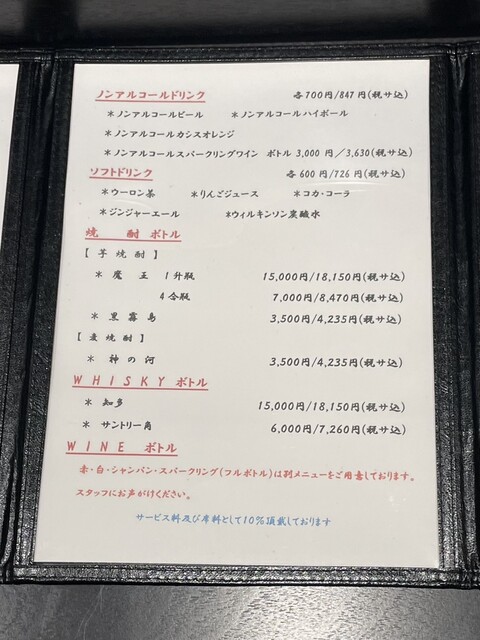 ノンアルコールドリンク 各700円/847円(税サ込)
＊ノンアルコールビール ＊ノンアルコールハイボール
＊ノンアルコールカシスオレンジ
＊ノンアルコールスパークリングワイン ボトル 3,000 円／3,630(税サ込)
ソフトドリンク 各 600 円/726 円(税サ込)
＊ウーロン茶 ＊りんごジュース ＊コカ・コーラ
＊ジンジャーエール ＊ウィルキンソン炭酸水
焼 酎 ボトル
【 芋 焼 酎 】
＊ 魔 王 1升瓶 15,000円/18,150円(税サ込)
4合瓶 7,000円/8,470円(税サ込)
＊ 黒 霧 島 3,500円/4,235円(税サ込)
【 麦 焼 酎 】
＊ 神 の 河 3,500円/4,235円(税サ込)
W H I S K Y ボトル
＊ 知多 15,000円/18,150円(税サ込)
＊ サントリー角 6,000円/7,260円(税サ込)
W I N E ボトル
赤・白・シャンパン・スパークリング(フルボトル)は別メニューをご用意しております。
スタッフにお声がけください。
サービス料及び席料として10%頂戴しております